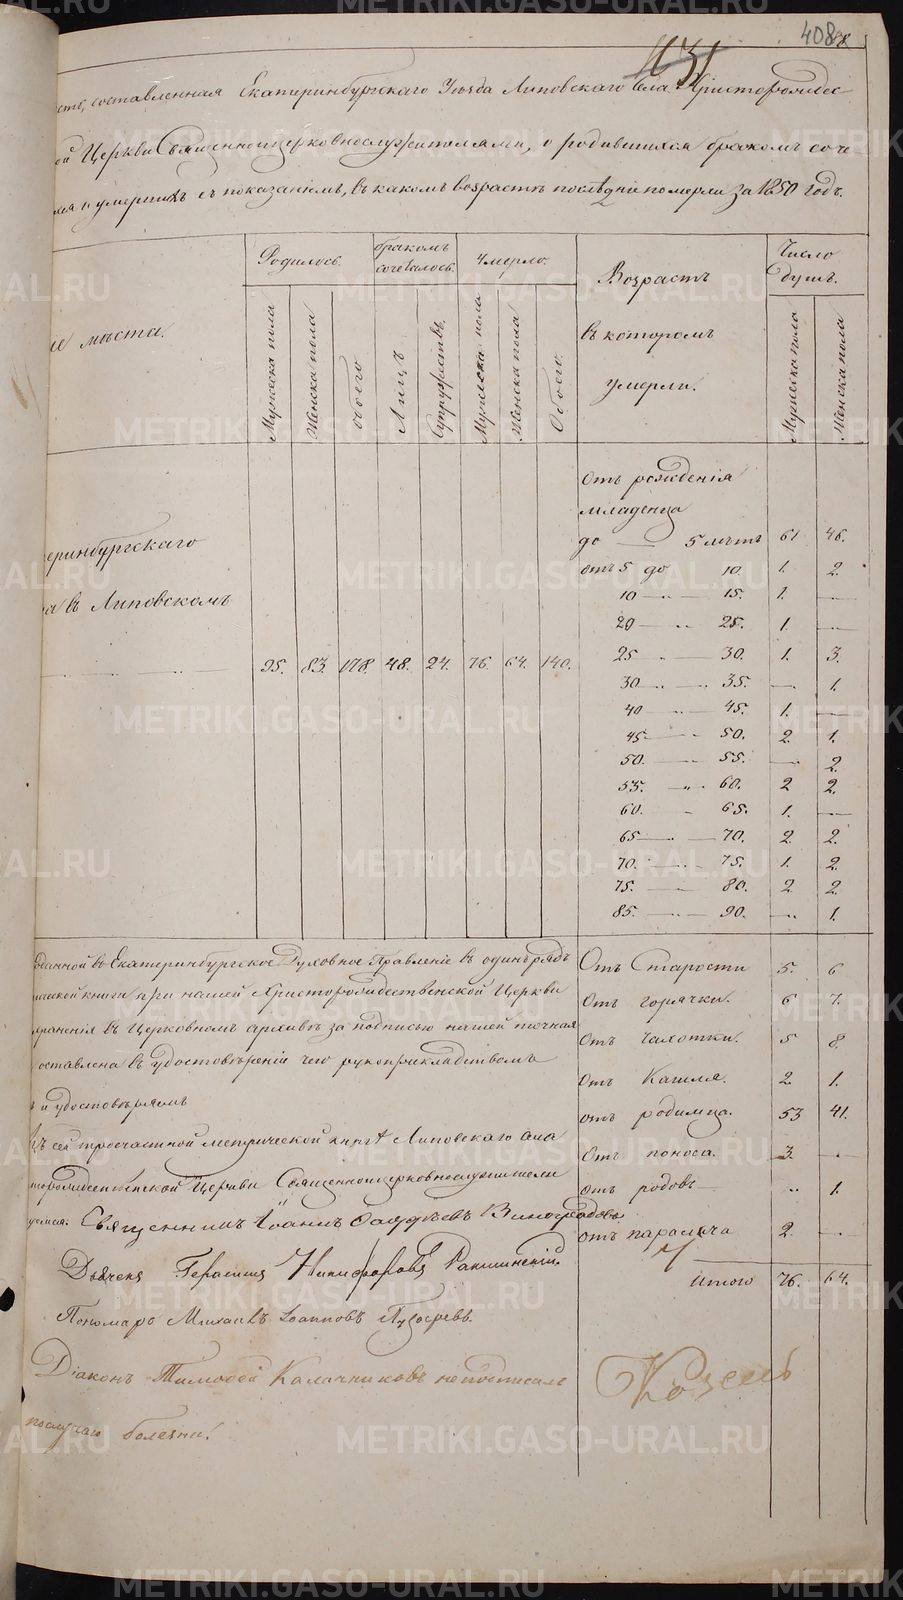 408
1131
ость, составленная Екатеринбургскаго Уѣзда Липовскаго Села Христорождес-
ой Церкви Священноцерковнослужителями, о родившихся бракомъ соче-
хся и умершихъ съ показаніемъ, въ какомъ возрастѣ послѣдніе померли за 1850 годъ.
ие мѣста.
Родилось.
бракомъ сочеталось.
Умерло.
Возрастъ
въ которомъ
умерли.
Число душъ.
Мужеска пола
Женска пола
обоего
Лицъ
Супружествъ
Мужеска пола
Женска пола
Обоего
Мужеска пола
Женска пола
отъ рожденія
младенца
до — 5 лѣтъ 61 46.
еринбургскаго
отъ 5 до 10. 1. 2.
10 — 15. 1. —
въ Липовскомъ
20 — 25. 1. —
95. 83. 178. 48. 24. 76. 64. 140.
25 — 30. 1. 3.
30 — 35. — 1.
40 — 45. 1. —
45 — 50. 2. 1.
50. — 55. — 2.
55. — 60. 2 2.
60. — 65. 1. —
65 — 70. 2. 2.
70. — 75. 1. 2.
75. — 80. 2. 2.
85. — 90. — 1.
данной въ Екатеринбургское Духовное Правленіе въ одинъ рядъ
ческой книги при нашей Христорождественской Церкви
храненія въ Церковномъ архивѣ за подписью нашей точная
оставлена въ удостовѣреніи чего рукоприкладствомъ
и удостовѣряемъ
Къ сей тросчастной метрической книгѣ Липовскаго села
торождественской Церкви Священноцерковнослужители
Священникъ Іоаннъ Виноградовъ
Дьячекъ Герасимъ Никифоровъ
Пономарь Михаилъ Іоанновъ
Діаконъ Тимофей Калачниковъ неподписалъ
по случаю болезни.
Отъ Старости 5. 6
Отъ горячки. 6 7.
Отъ Чахотки. 5 8.
Отъ Кашля. 2. 1.
отъ родимца. 53 41.
Отъ поноса. 3. —
отъ родовъ — .. 1.
отъ паралича 2. —
Итого 76. 64.
METRIKI.GASO-URAL.RU